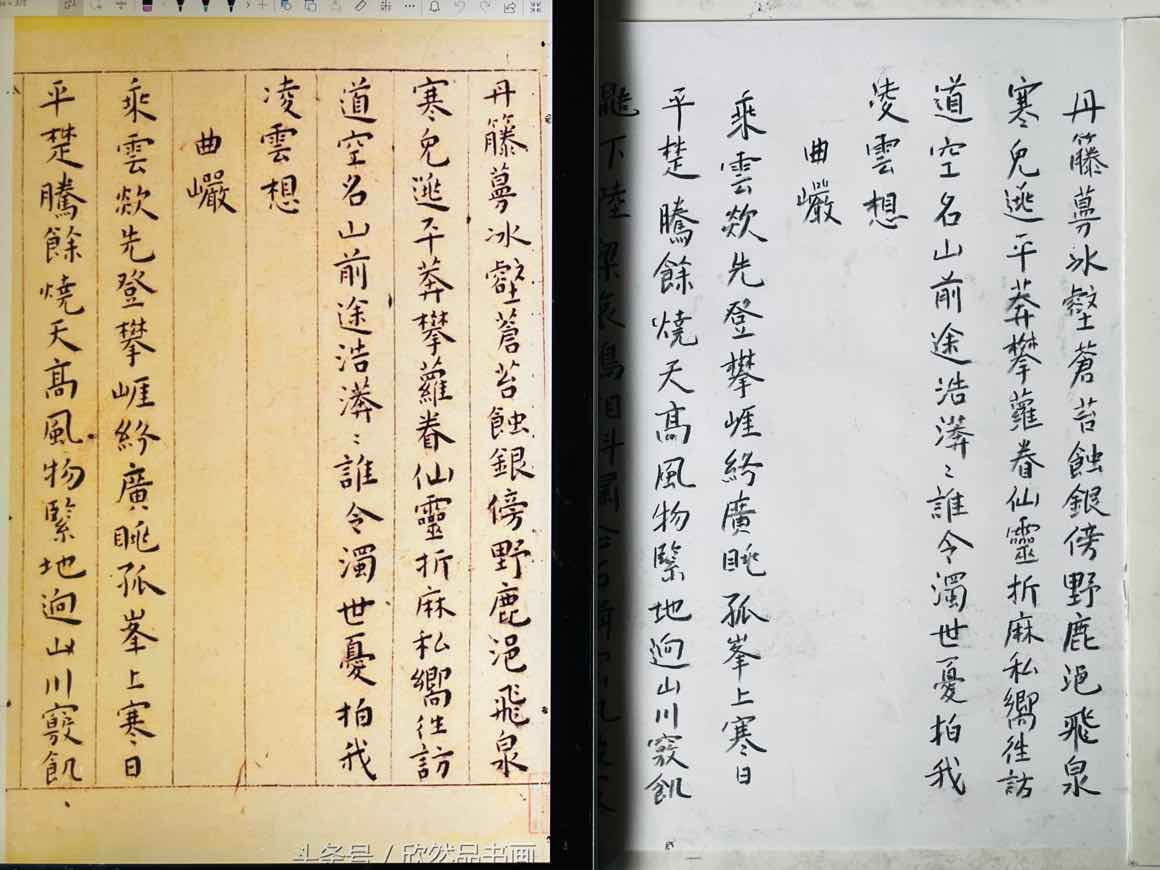 丹籐蔓冰壑蒼苔蝕銀傍野鹿浥飛泉
寒兔逃平莽攀蘿眷仙靈折麻私嚮往訪
道空名山前途浩漭〻誰令濁世憂拍我
凌雲想
曲巖
乘雲欻先登攀崕終廣眺孤峯上寒日
平楚騰餘燒天高風物緊地迥山川窈飢
头条号 / 欣然品书画
丹籐蔓冰壑蒼苔蝕銀傍野鹿浥飛泉
寒兔逃平莽攀蘿眷仙靈折麻私嚮往訪
道空名山前途浩漭〻誰令濁世憂拍我
凌雲想
曲巖
乘雲欻先登攀崕終廣眺孤峯上寒日
平楚騰餘燒天高風物緊地迥山川窈飢
下陸梁哀